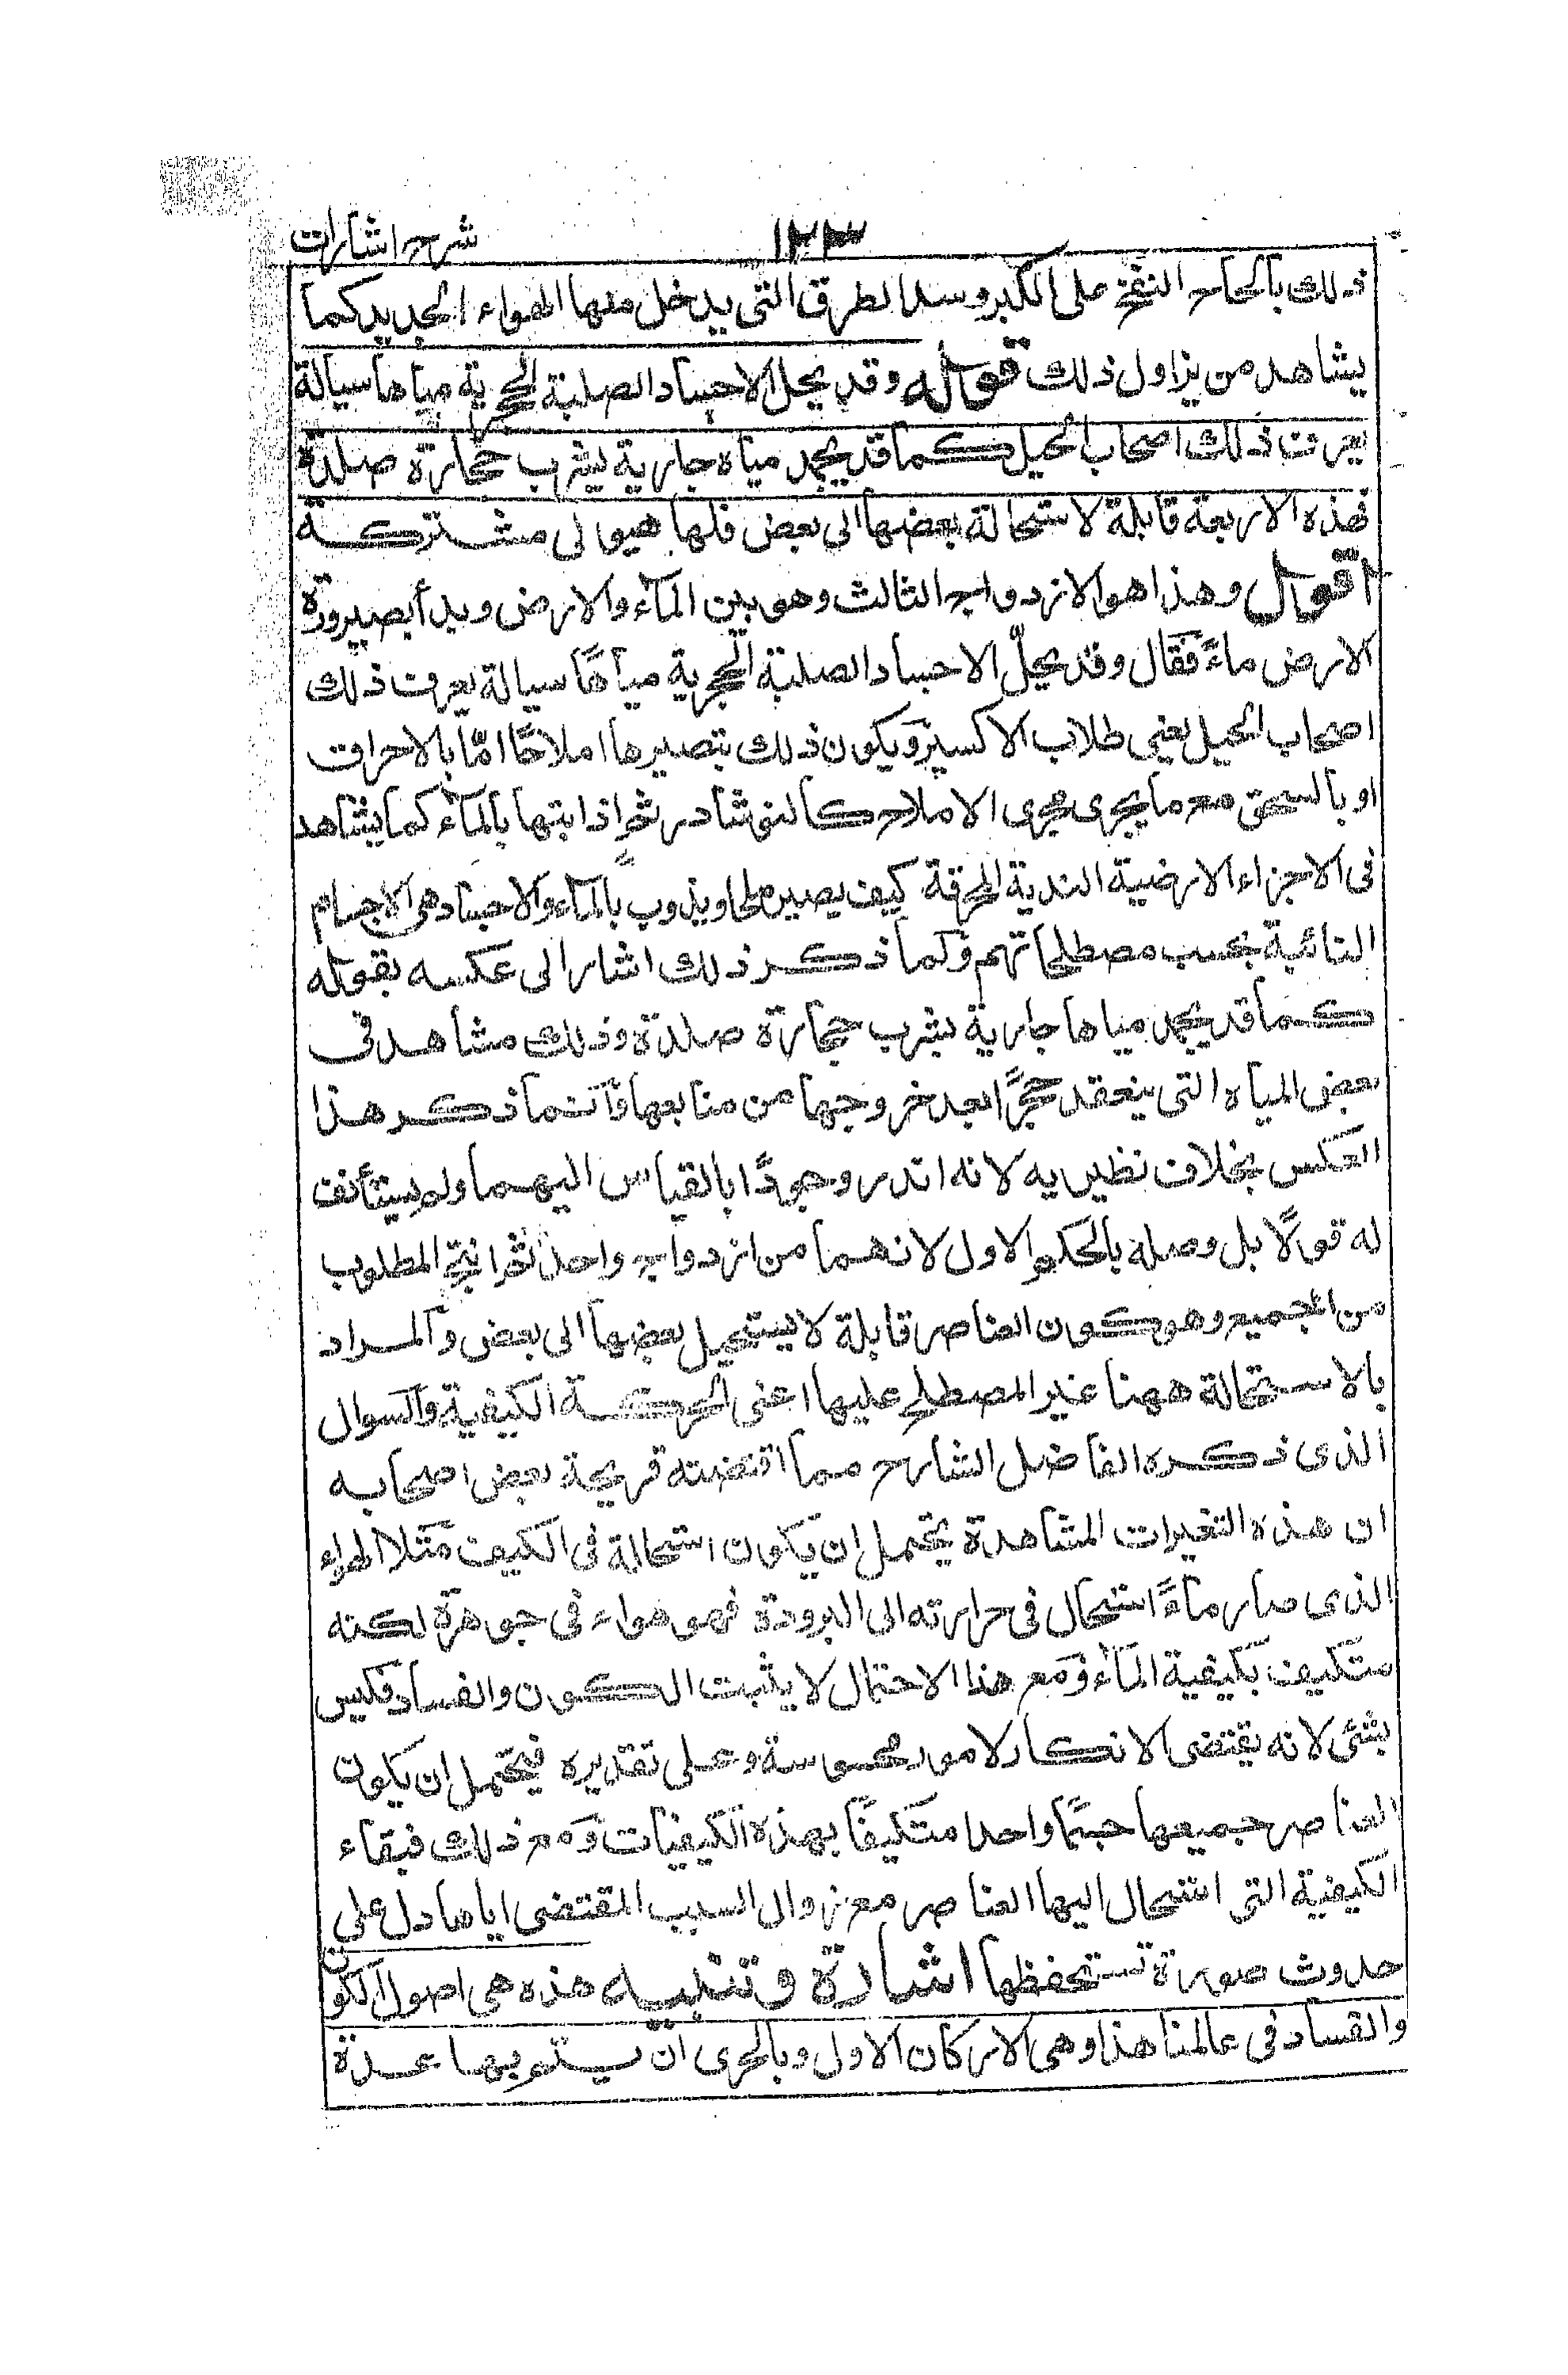 شرح اشارات ١٢٣
ذلك بالحاح النفخ على الكير وسد الطرق التى يدخل منها الهواء الجديد كما
يشاهد من يزاول ذلك قوله وقد يحل الاجساد الصلبة الحجرية مياها سيالة
يعرف ذلك اصحاب الحيل كما قد يجمد مياه جارية يشرب حجارة صلدة
فهذه الاربعة قابلة لاستحالة بعضها الى بعض فلها هيولى مشتركة
اقول وهذا هو الازدواج الثالث وهو بين الماء والارض وبدأ بصيرورة
الارض ماءً فقال وقد يحلّ الاجساد الصلبة الحجرية مياهًا سيالة يعرف ذلك
اصحاب الحيل يعنى طلاب الاكسير ويكون ذلك بتصييرها املاحًا امّا بالاحراق
او بالسحق مع ما يجرى مجرى الاملاح كالنوشادر ثم اذابتها بالماء كما يشاهد
فى الاجزاء الارضية الندية المحرقة كيف يصير ملحا ويذوب بالماء والاجساد هى الاجسام
الذائبة بحسب مصطلحاتهم وكما ذكر ذلك اشار الى عكسه بقوله
كما قد يجمد مياها جارية يشرب حجارة صلدة وذلك مشاهد فى
بعض المياه التى ينعقد حجرًا بعد خروجها من منابعها وانما ذكر هذا
العكس بخلاف نظيريه لانه اندر وجودًا بالقياس اليهما ولم يستأنف
له قولًا بل وصله بالحكم الاول لانهما من ازدواج واحد ثم انتج المطلوب
من الجميع وهو كون العناصر قابلة لا يستحيل بعضها الى بعض والمراد
بالاستحالة ههنا غير المصطلح عليها اعنى الحركة الكيفية والسوال
الذى ذكره الفاضل الشارح مما اقتضته قريحة بعض اصحابه
ان هذه التغيرات المشاهدة يحتمل ان يكون استحالة فى الكيف مثلا الهواء
الذى صار ماءً استحال فى حرارته الى البرودة فهو هواء فى جوهرة لكنه
متكيف بكيفية الماء ومع هذا الاحتمال لا يثبت الكون والفساد فليس
بشئ لانه يقتضى الانكار لامور محسوسة وعلى تقديره فيحتمل ان يكون
العناصر جميعها جسمًا واحدا متكيفًا بهذه الكيفيات ومع ذلك فبقاء
الكيفية التى استحال اليها العناصر مع زوال السبب المقتضى اياها دل على
حدوث صورة تستحفظها اشارة وتنبيه هذه هى اصول الكون
والفساد فى عالمنا هذا وهى الاركان الاول وبالحرى ان يستم بها عدة